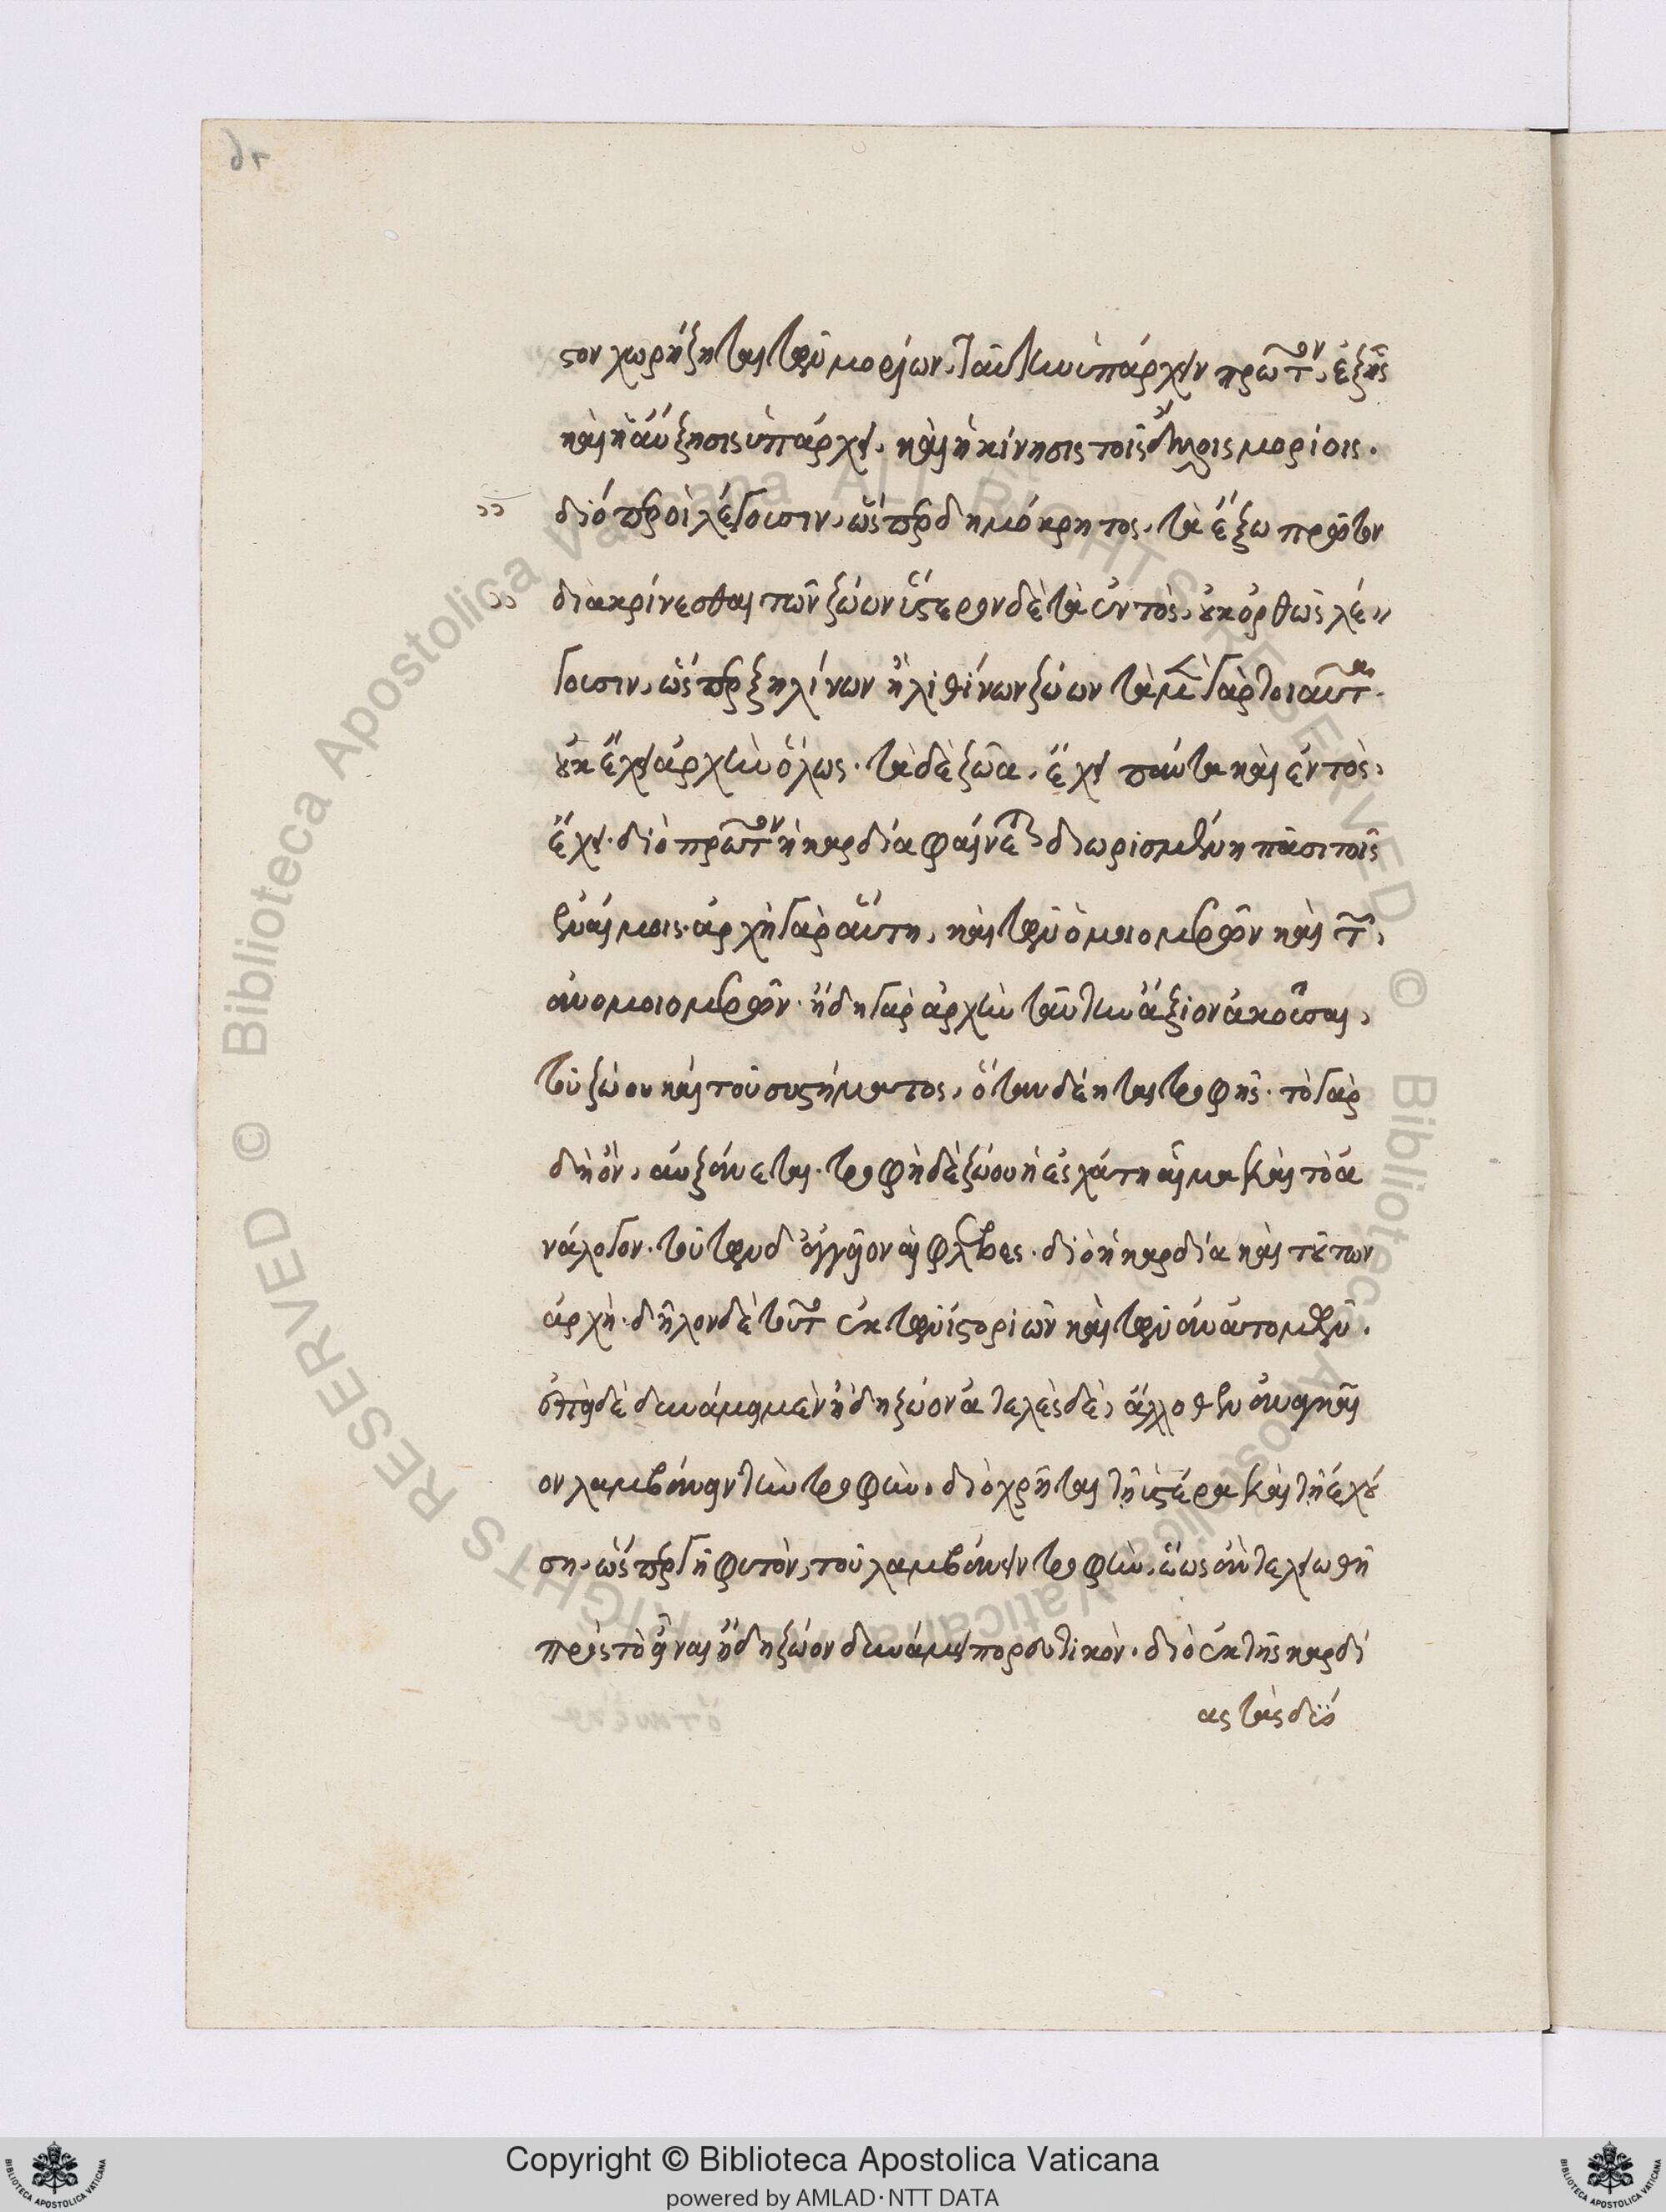 στον χωρήξηται τῶν μορίων, ταύτην ὑπάρχειν πρῶτον, ἑξῆς
καὶ ἡ αὔξησις ὑπάρχει, καὶ ἡ κίνησις τοῖς ἄλλοις μορίοις.
διόπερ οἱ λέγουσιν, ὥσπερ δημόκρητος, τὰ ἔξω πρῶτον
διακρίνεσθαι τῶν ζώων ὕστερον δὲ τὰ ἐντὸς, οὐκ ὀρθῶς λέ
γουσιν, ὥσπερ ξηλίνων ἢ λιθίνων ζώων τὰ μὲν γὰρ τοιαῦτα
οὐκ ἔχει ἀρχὴν ὅλως. τὰ δὲ ζῶα, ἔχει πάντα καὶ ἐντὸς,
ἔχει. διὸ πρῶτον ἡ καρδία φαίνεται διωρισμένη πᾶσι τοῖς
ἐναίμοις. ἀρχὴ γὰρ αὕτη, καὶ τῶν ὁμοιομερῶν καὶ τῶν,
ἀνομοιομερῶν. ἤδη γὰρ ἀρχὴν ταύτην ἄξιον ἀκοῦσαι,
τοῦ ζώου καὶ τοῦ συστήματος, ὅταν δέηται τροφῆς. τὸ γὰρ
δὴ ὂν, αὐξάνεται. τροφὴ δὲ ζώου ἡ ἐσχάτη αἷμα καὶ τὸ ἀ
νάλογον. τούτων δ' ἀγγεῖον αἱ φλέβες. διὸ ἡ καρδία καὶ τούτων
ἀρχὴ. δῆλον δὲ τοῦτο ἐκ τῶν ἱστοριῶν καὶ τῶν ἀνατομῶν.
ἐπεὶ δὲ δυνάμει μὲν ἤδη ζῶον ἀτελὲς δὲ, ἄλλοθεν ἀναγκαῖ
ον λαμβάνειν τὴν τροφὴν. διὸ χρῆται τῇ ὑστέρα καὶ τῇ ἐχού
ση, ὥσπερ γῆ φυτὸν, τοῦ λαμβάνειν τροφὴν, ἕως ἂν τελειωθῆ
πρὸς τὸ εἶναι ἤδη ζῶον δυνάμει πορευτικὸν. διὸ ἐκ τῆς καρδί
ας τὰς δύο
Copyright © Biblioteca Apostolica Vaticana
powered by AMLAD·NTT DATA